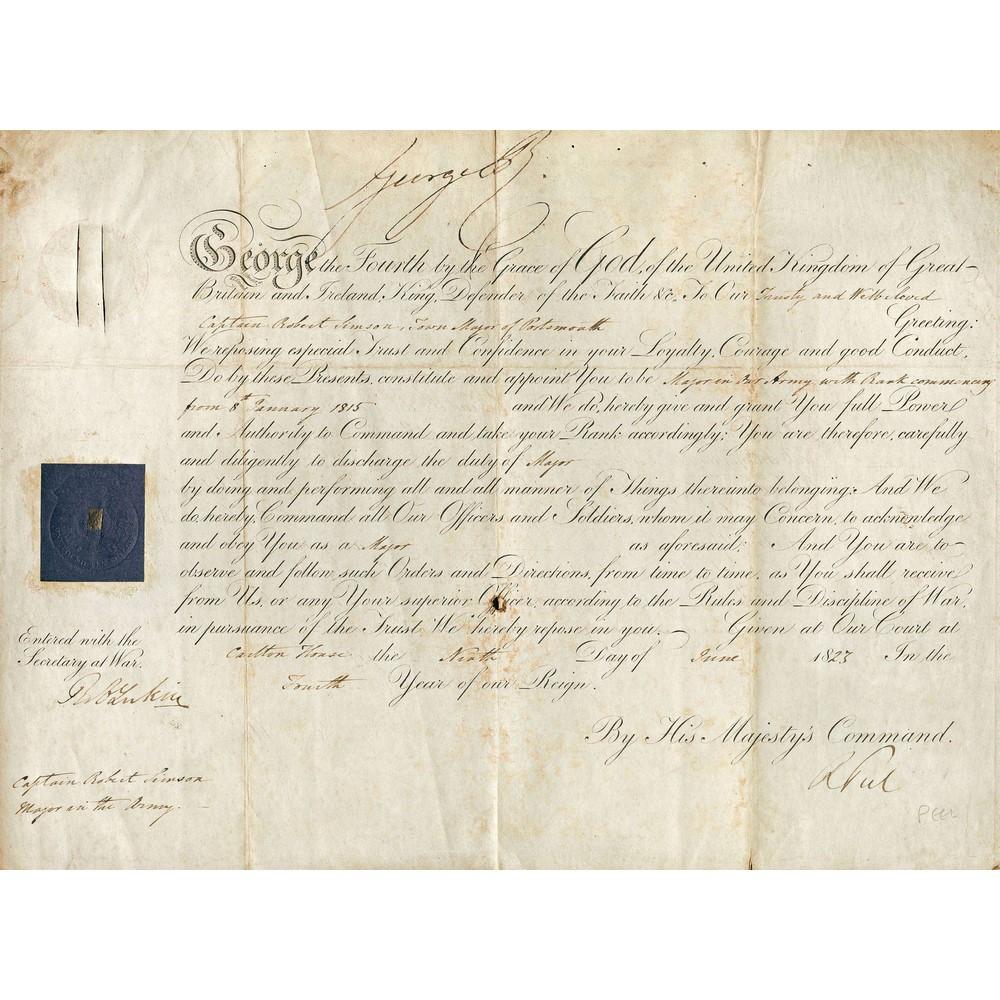 George R.
George the Fourth by the Grace of God, of the United Kingdom of Great
Britain and Ireland, King, Defender of the Faith &c. To Our Trusty and Welbeloved
Captain Robert Simson, Town Major of Portsmouth Greeting:
We reposing especial Trust and Confidence in your Loyalty, Courage and good Conduct,
Do by these Presents, constitute and appoint You to be Major in Our Army with Rank commencing
from 8th January 1815 and We do, hereby give and grant You full Power
and Authority to Command and take your Rank accordingly; You are therefore, carefully
and diligently to discharge the duty of Major
by doing and performing all and all manner of Things thereunto belonging: And We
do, hereby, Command all Our Officers and Soldiers, whom it may Concern, to acknowledge
and obey You as a Major as aforesaid; And You are to
observe and follow such Orders and Directions, from time to time, as You shall receive
from Us, or any Your superior Officer, according to the Rules and Discipline of War,
in pursuance of the Trust We hereby repose in you. Given at Our Court at
Carlton House the Ninth Day of June 1823 In the
Fourth Year of our Reign.
By His Majesty's Command.
R Peel
PEEL
Entered with the
Secretary at War.
Lukin
Captain Robert Simson
Major in the Army.